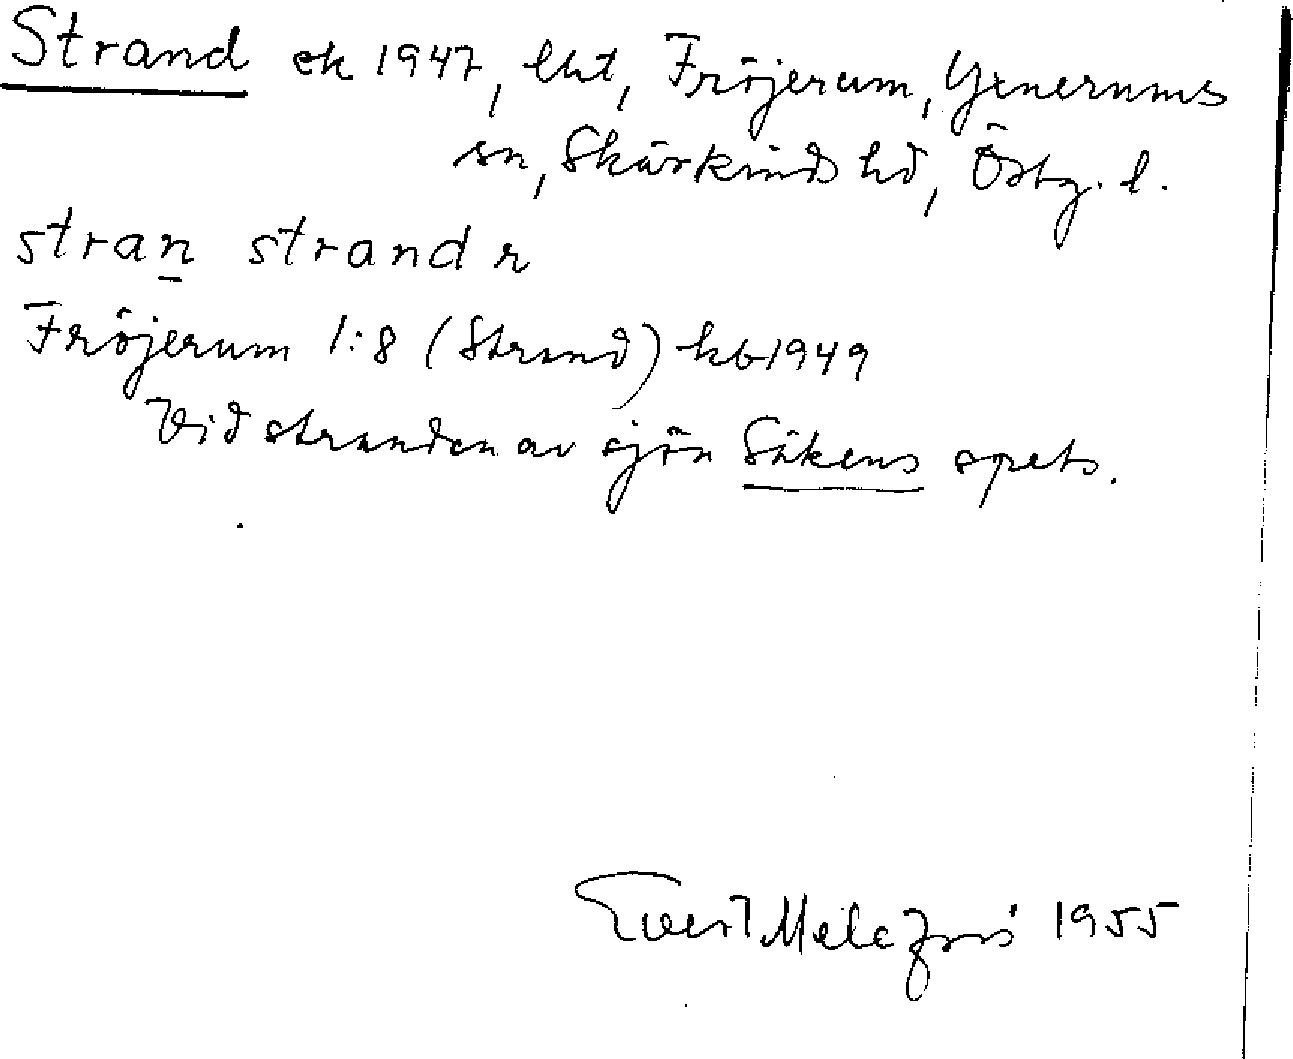 Strand ek 1947, lht, Fröjerum, Yxnerums
sn, Skärkinds hd, Östg. l.
stran strand r
Fröjerum 1:8 (Strand) kb 1949
Vid stranden av sjön Såkens spets.
Evert Melefors 1955